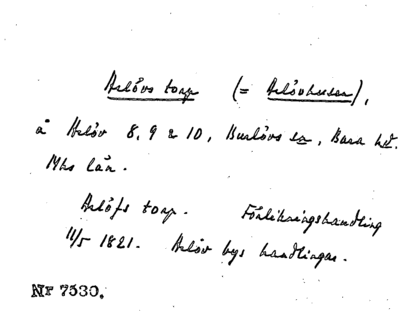 Arlövs torp (= Arlövhusen),
å Arlöv 8, 9 & 10, Burlövs sn, Bara hd.
Mhs län.
Arlöfs torp. Förlikningshandling
11/5 1821. Arlöv bys handlingar.
Nr 7530.